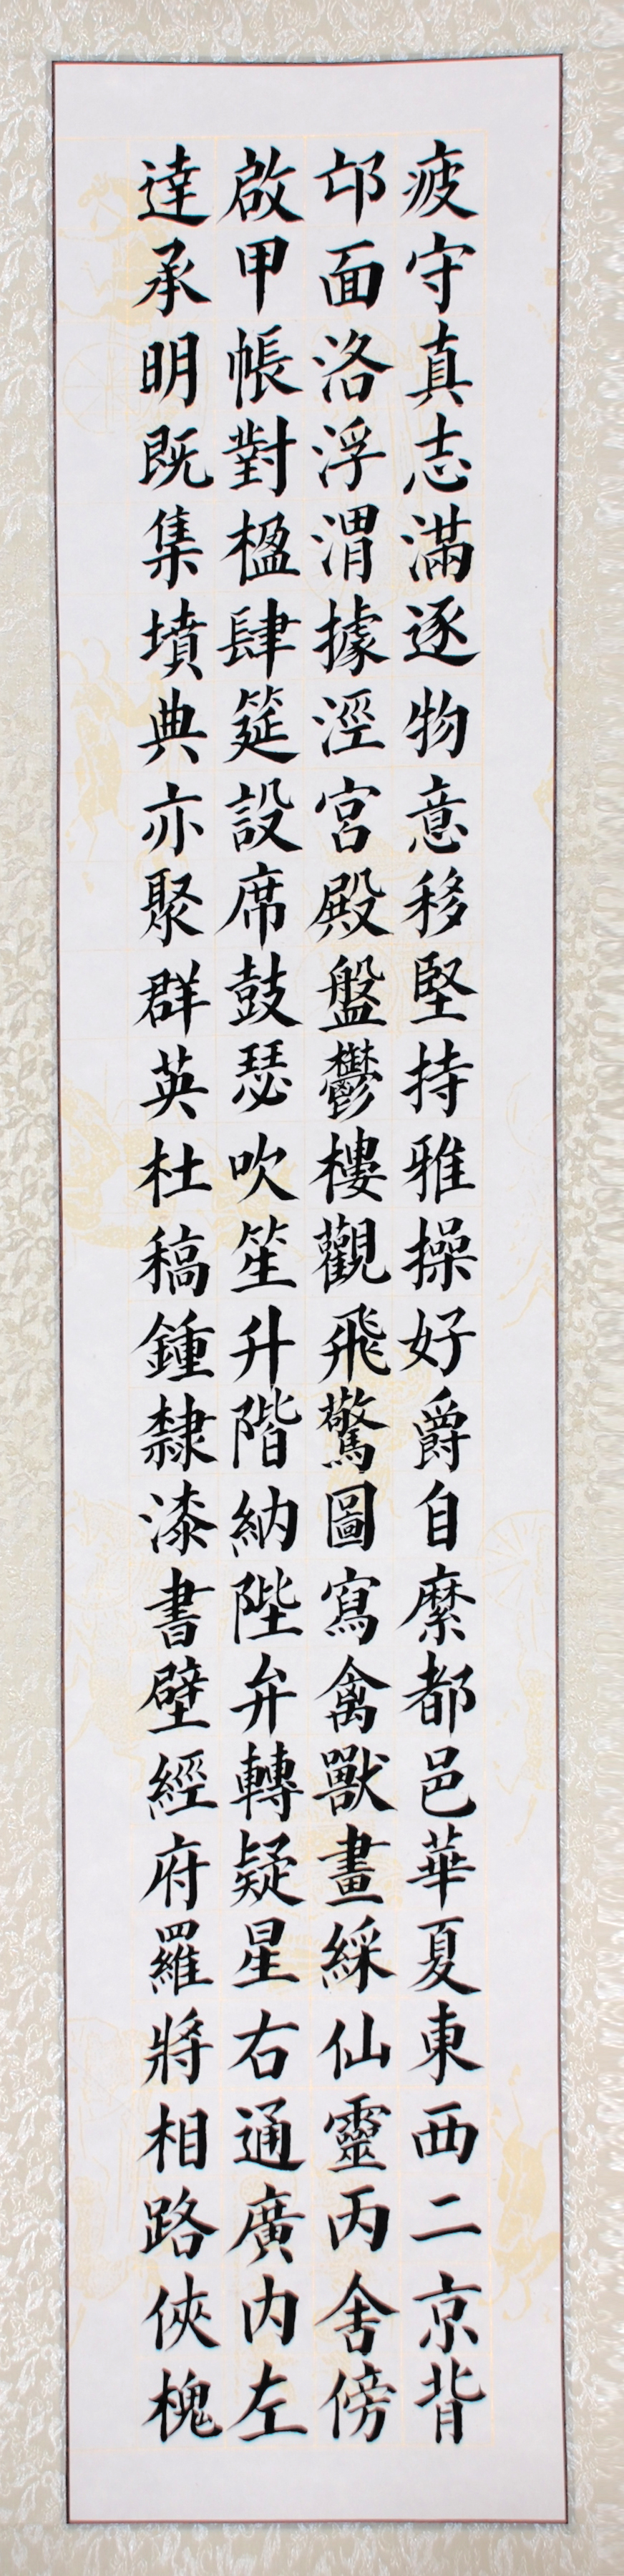 疲守真志滿逐物意移堅持雅操好爵自縻都邑華夏東西二京背
邙面洛浮渭據涇宮殿盤鬱樓觀飛驚圖寫禽獸畫綵仙靈丙舍傍
啟甲帳對楹肆筵設席鼓瑟吹笙升階納陛弁轉疑星右通廣內左
達承明既集墳典亦聚群英杜稿鍾隸漆書壁經府羅將相路俠槐